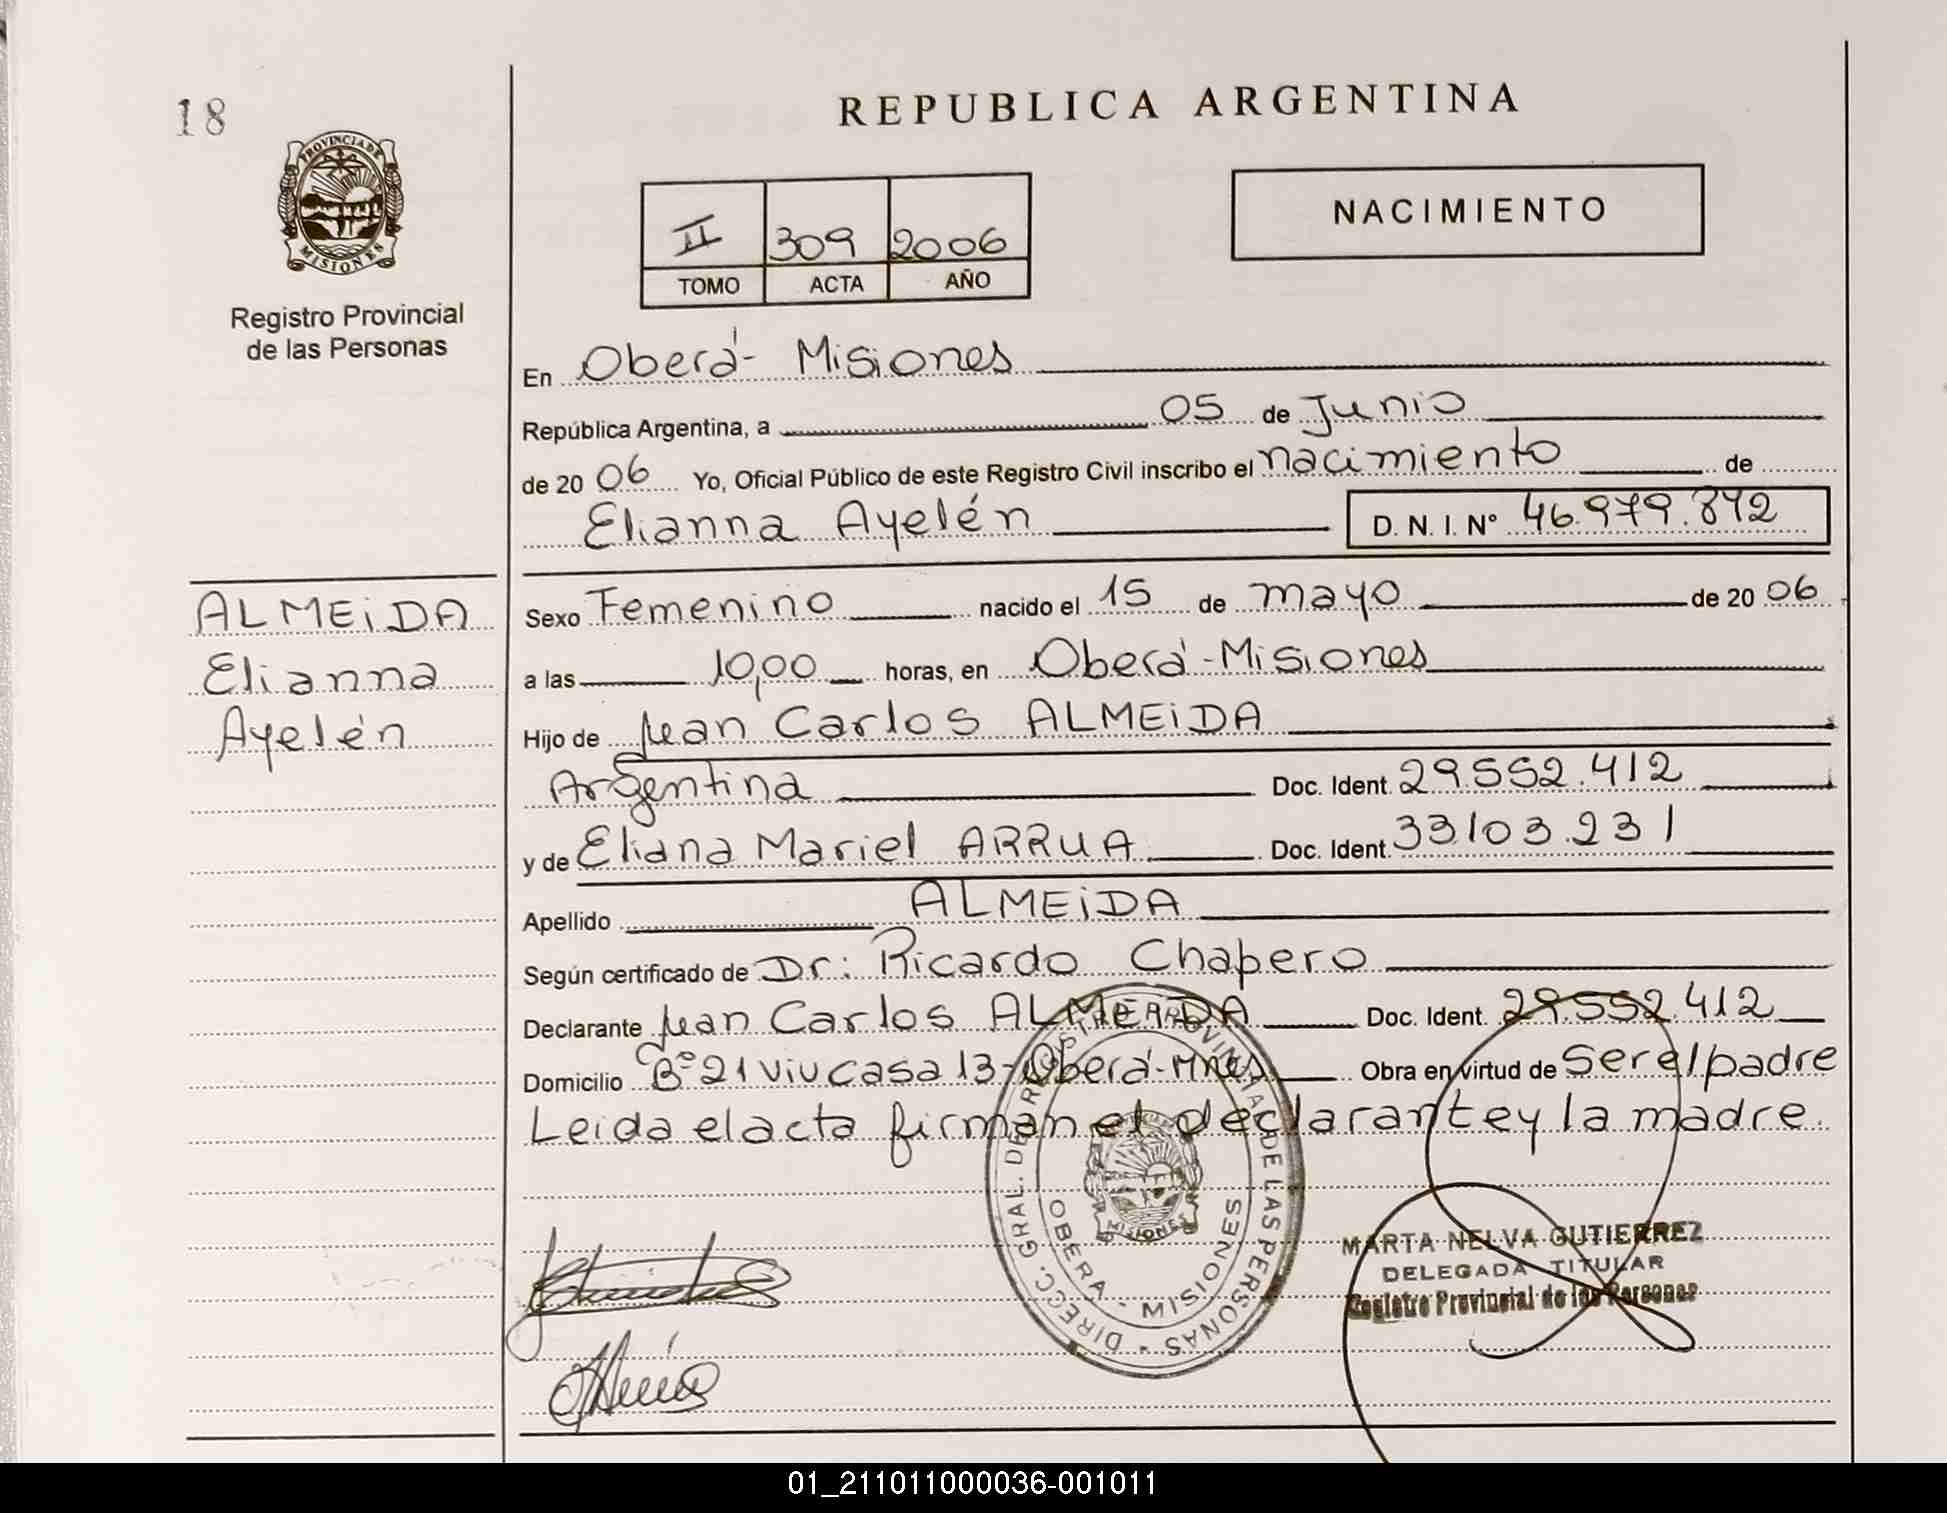 18
PROVINCIA DE
MISIONES
Registro Provincial
de las Personas
REPUBLICA ARGENTINA
II 309 2006
TOMO ACTA AÑO
NACIMIENTO
En Oberá - Misiones
República Argentina, a 05 de Junio
de 20 06 Yo, Oficial Público de este Registro Civil inscribo el nacimiento de
Elianna Ayelén D. N. I. N° 46.979.872
ALMEiDA
Elianna
Ayelén
Sexo Femenino nacido el 15 de mayo de 20 06
a las 10,00 horas, en Oberá - Misiones
Hijo de Juan Carlos ALMEiDA
Argentina Doc. Ident. 29.552.412
y de Eliana Mariel ARRUA Doc. Ident. 33.103.231
Apellido ALMEiDA
Según certificado de Dr: Ricardo Chapero
Declarante Juan Carlos ALMEiDA Doc. Ident. 29.552.412
Domicilio B° 21 Viv casa 13 - Oberá - Mnes Obra en virtud de ser el padre
Leida el acta firman el declarante y la madre.
DIRECC. GRAL. DE REGISTRO PROVINCIAL DE LAS PERSONAS
OBERA - MISIONES
MISIONES
MARTA NELVA GUTIERREZ
DELEGADA TITULAR
Registro Provincial de las Personas
01_211011000036-001011